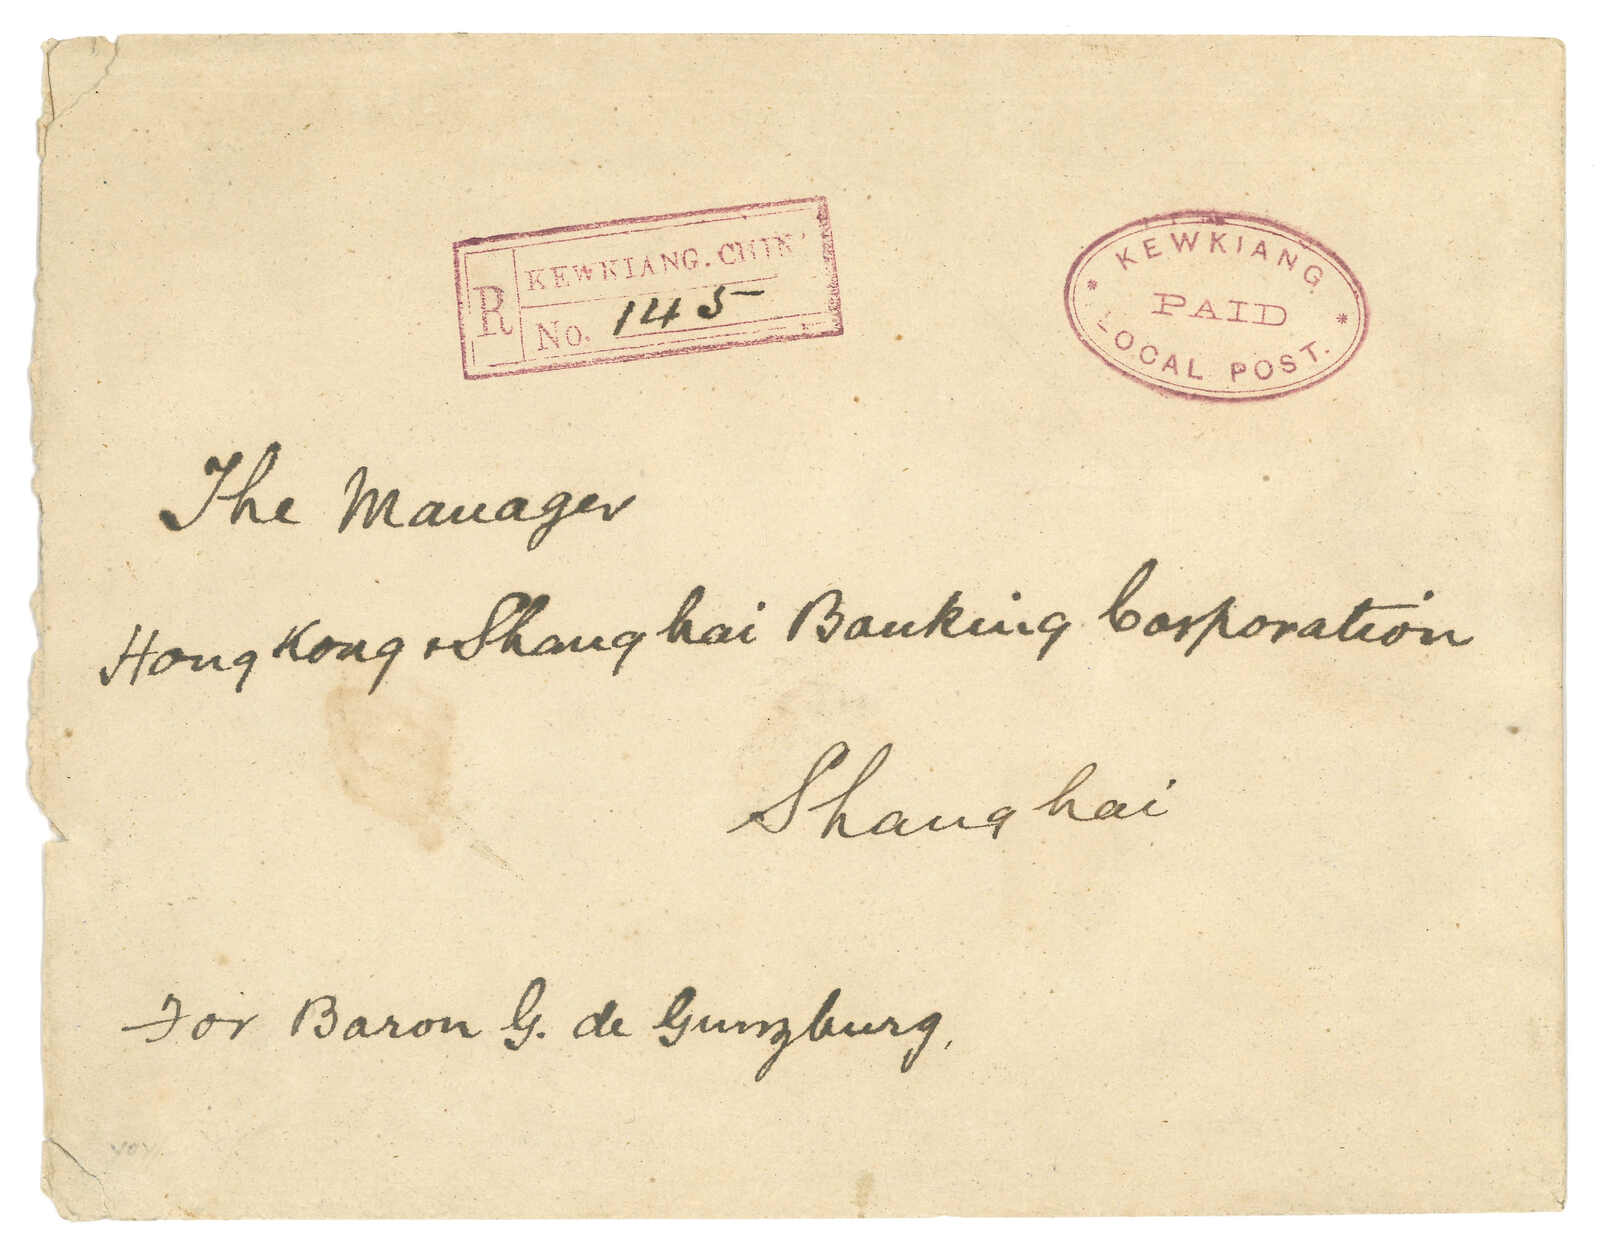 R KEWKIANG. CHIN
No. 145
* KEWKIANG *
PAID
LOCAL POST.
The Manager
Hongkong & Shanghai Banking Corporation
Shanghai
For Baron G. de Gunzburg,